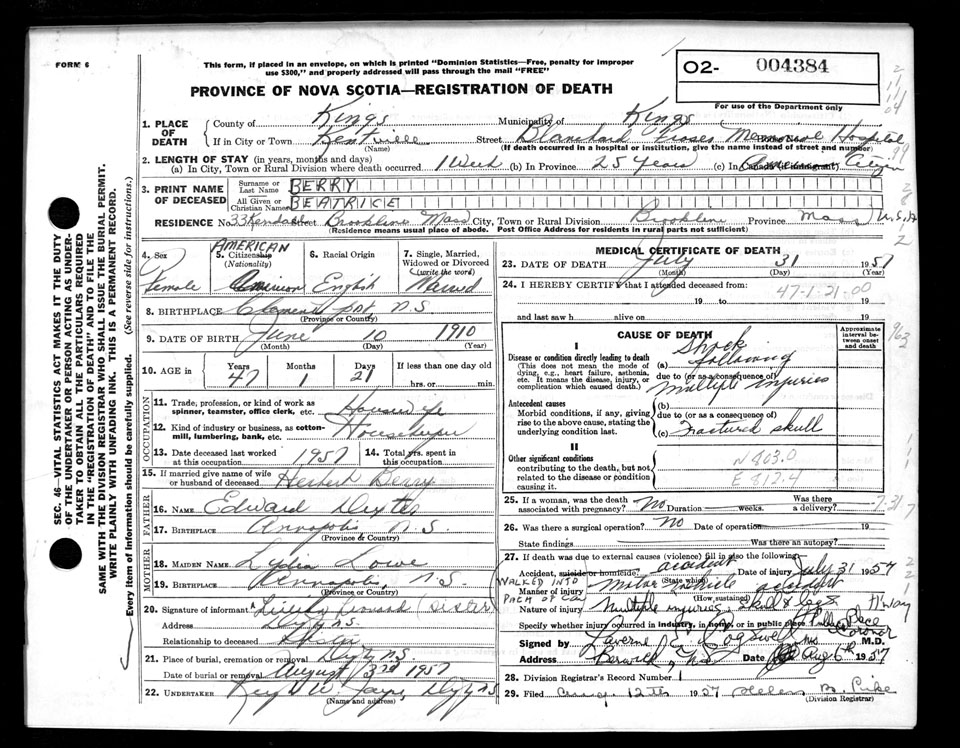 FORM 6
This form, if placed in an envelope, on which is printed "Dominion Statistics—Free, penalty for improper
use $300," and properly addressed will pass through the mail "FREE"
02- 004384
For use of the Department only
PROVINCE OF NOVA SCOTIA—REGISTRATION OF DEATH
1. PLACE OF DEATH
County of Kings Municipality of Kings
If in City or Town Kentville Street Blanchard Fraser Memorial Hospital
(Name) (If death occurred in a hospital or institution, give the name instead of street and number)
2. LENGTH OF STAY (in years, months and days)
(a) In City, Town or Rural Division where death occurred 1 Week (b) In Province 25 years (c) In Canada (if immigrant)
3. PRINT NAME OF DECEASED
Surname or Last Name BERRY
All Given or Christian Names BEATRICE
RESIDENCE No. 33 Kendall Street Brookline Mass City, Town or Rural Division Brookline Province Mass U.S.A
(Residence means usual place of abode. Post Office Address for residents in rural parts not sufficient)
4. Sex Female
5. Citizenship (Nationality) AMERICAN
6. Racial Origin English
7. Single, Married, Widowed or Divorced (write the word)
8. BIRTHPLACE Clementsport N.S.
(Province or Country)
9. DATE OF BIRTH June 10 1910
(Month) (Day) (Year)
10. AGE in Years 47 Months 1 Days 21 If less than one day old
hrs. or min.
OCCUPATION
11. Trade, profession, or kind of work as spinner, teamster, office clerk, etc. Housewife
12. Kind of industry or business, as cotton-mill, lumbering, bank, etc. Housekeeper
13. Date deceased last worked at this occupation 1957
14. Total yrs. spent in this occupation
15. If married give name of wife or husband of deceased Herbert Berry
FATHER
16. NAME Edward
17. BIRTHPLACE Annapolis N.S.
(Province & Country)
MOTHER
18. MAIDEN NAME Lydia Lowe
19. BIRTHPLACE Annapolis, N.S
(Province or Country)
20. Signature of informant (sister)
Address Digby N.S.
Relationship to deceased Sister
21. Place of burial, cremation or removal Digby N.S
Date of burial or removal August 3rd 1957
22. UNDERTAKER Digby N.S
(Name and address)
MEDICAL CERTIFICATE OF DEATH
23. DATE OF DEATH July 31 1957
(Month) (Day) (Year)
24. I HEREBY CERTIFY that I attended deceased from 47-1-21-00
19 to 19
and last saw h alive on 19
CAUSE OF DEATH
Approximate interval between onset and death
I
Disease or condition directly leading to death
(This does not mean the mode of dying, e.g., heart failure, asthenia, etc. It means the disease, injury, or complication which caused death.)
(a) Shock following
due to (or as a consequence of)
multiple injuries
Antecedent causes
Morbid conditions, if any, giving rise to the above cause, stating the underlying condition last.
(b)
due to (or as a consequence of)
(c) Fractured skull
II
Other significant conditions
contributing to the death, but not related to the disease or condition causing it.
N 803.0
E 812.4
25. If a woman, was the death associated with pregnancy? No Duration weeks. Was there a delivery?
26. Was there a surgical operation? No Date of operation 19
State findings Was there an autopsy?
27. If death was due to external causes (violence) fill in also the following:
Accident, suicide or homicide? accident Date of injury July 31 1957
(State which)
WALKED INTO
Manner of injury Motor Vehicle accident
(How sustained)
Nature of injury Multiple injuries, skull & legs
Specify whether injury occurred in industry, in home, or in public place Public Place
Signed by Laverne E. Cogswell Coroner M.D.
Address Berwick, N.S Date Aug 6th 1957
28. Division Registrar's Record Number 1
29. Filed Aug. 12th 1957 Helen B. Pike
(Division Registrar)
SEC. 46—VITAL STATISTICS ACT MAKES IT THE DUTY
OF THE UNDERTAKER OR PERSON ACTING AS UNDER-
TAKER TO OBTAIN ALL THE PARTICULARS REQUIRED
IN THE "REGISTRATION OF DEATH" AND TO FILE THE
SAME WITH THE DIVISION REGISTRAR WHO SHALL ISSUE THE BURIAL PERMIT.
WRITE PLAINLY WITH UNFADING INK. THIS IS A PERMANENT RECORD.
Every item of information should be carefully supplied. (See reverse side for instructions.)